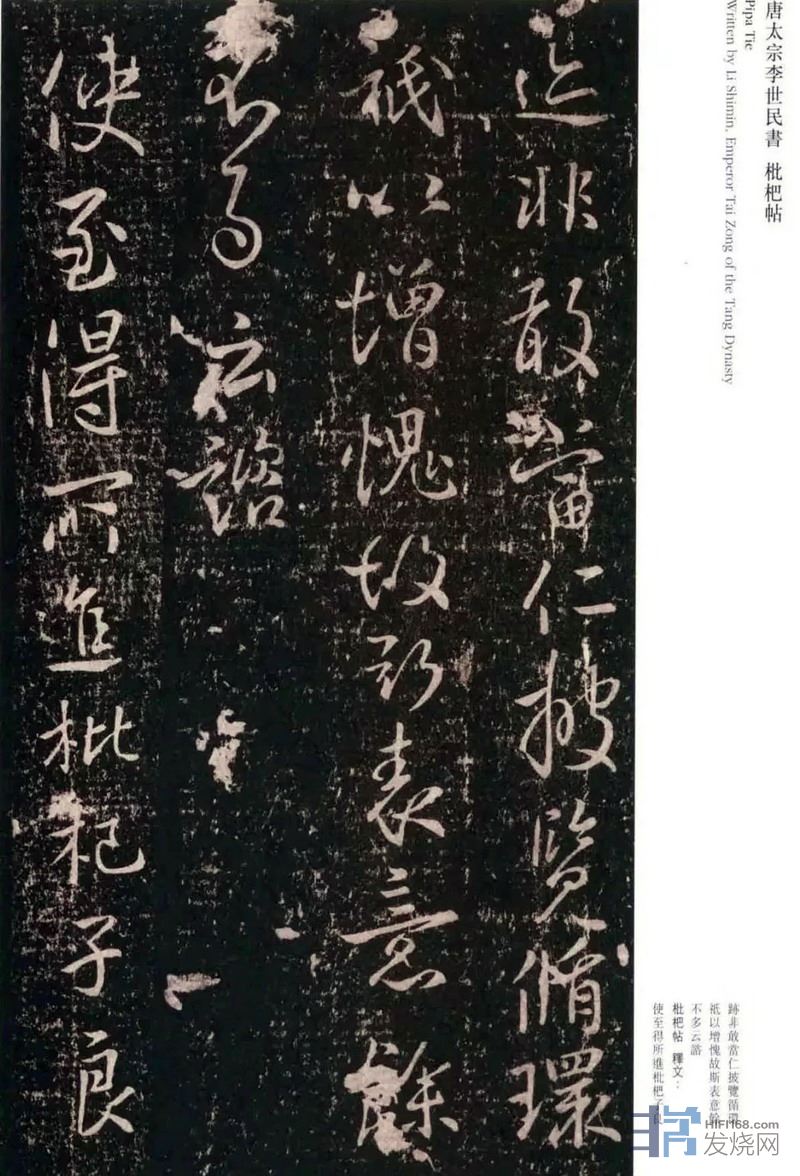 唐太宗李世民書 枇杷帖
Pipa Tie
Written by Li Shimin, Emperor Tai Zong of the Tang Dynasty
迹非敢當仁披覽循環
祇以增愧故斯表意餘
不多云諮
使至得所進枇杷子良
跡非敢當仁披覽循環
祇以增愧故斯表意餘
不多云諮
枇杷帖 釋文：
使至得所進枇杷子良
HIFI168.com
发烧网